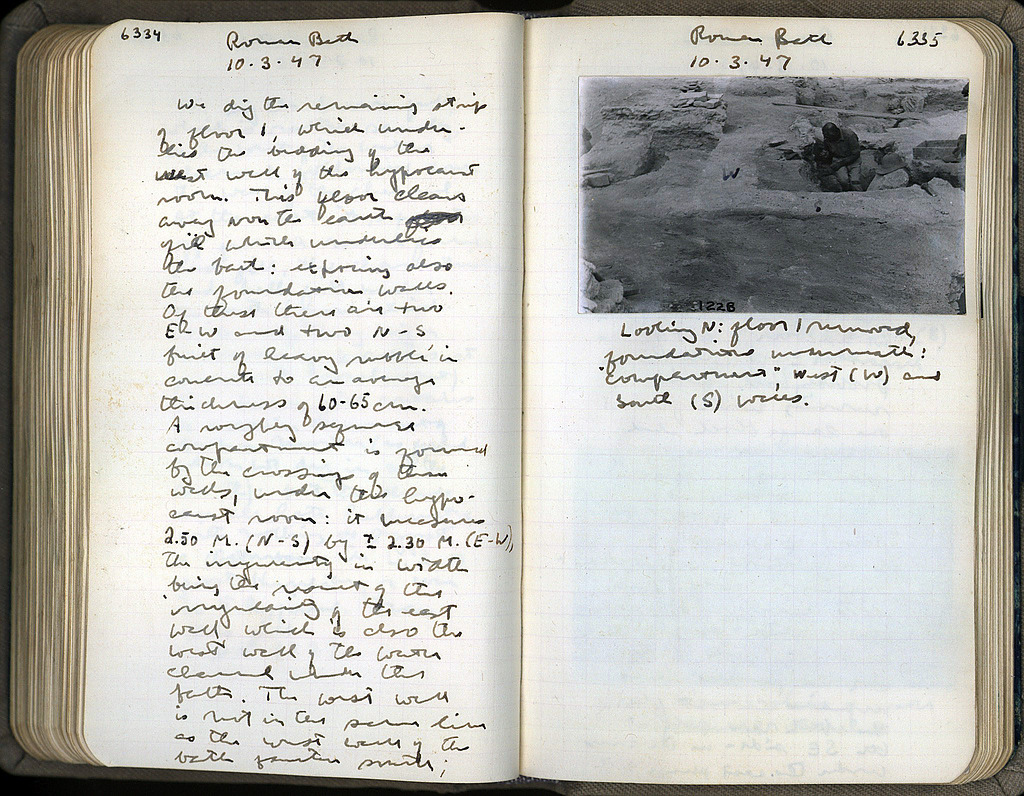 6334
Roman Bath
10.3.47
We dig the remaining strip
of floor 1, which under-
lies the bedding of the
west wall of the hypocaust
room. This floor cleans
away from the earth
fill which underlies
the bath: exposing also
the foundation walls.
Of these there are two
E-W and two N-S
built of heavy rubble in
concrete to an average
thickness of 60-65 cm.
A roughly square
compartment is formed
by the crossing of these
walls, under the hypo-
caust room: it measures
2.50 M. (N-S) by ± 2.30 M. (E-W),
the irregularity in width
being the result of the
irregularity of the east
wall which is also the
west wall of the water
channel under the
bath. The west wall
is not in the same line
as the west wall of the
bath further south;
Roman Bath
6335
10.3.47
W
1228
Looking N: floor 1 removed,
foundations underneath:
"compartment", West (W) and
South (S) walls.